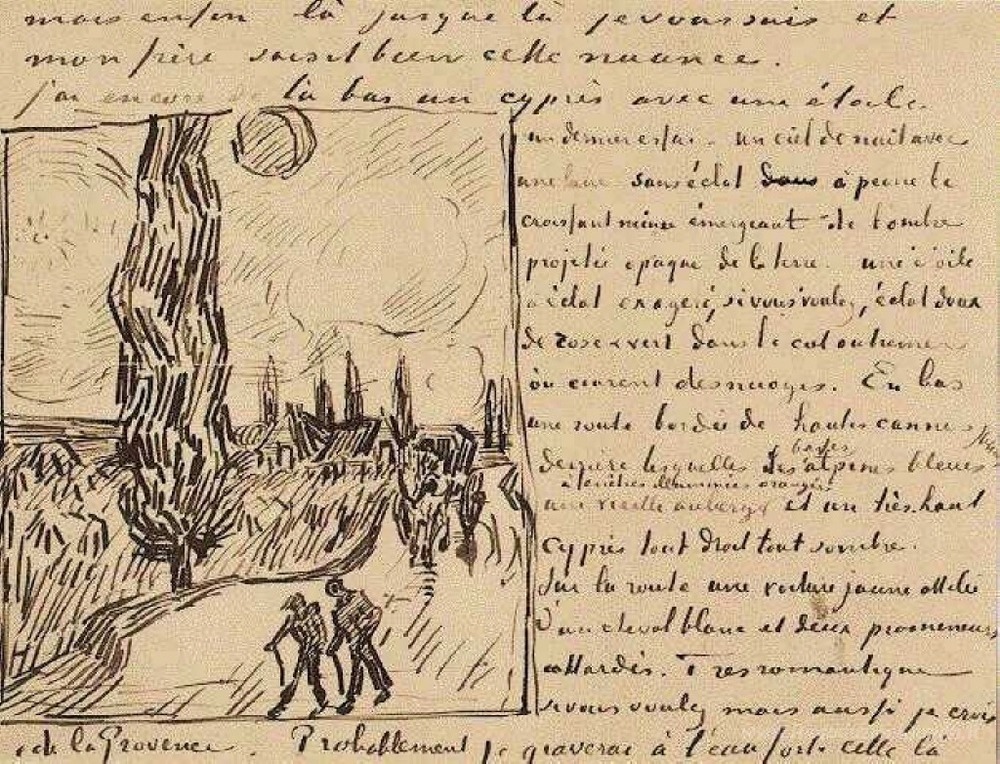 mais enfin là jusque là je vous suis et
mon père saisit bien cette nuance.
j'ai encore de là bas un cyprès avec une étoile
un dernier essai. un ciel de nuit avec
une lune sans éclat dans à peine le
croissant mince émergeant de l'ombre
projetée opaque de la terre. une étoile
à éclat exagéré, si vous voulez, éclat doux
de rose et vert dans le ciel outremer
où courent des nuages. En bas
une route bordée de hautes cannes
derrière lesquelles les basses alpines bleues
une vieille auberge à fenêtres illuminées orangées et un très haut
cyprès tout droit tout sombre.
Sur la route une voiture jaune attelée
d'un cheval blanc et deux promeneurs
attardés. Très romantique
si vous voulez mais aussi je crois
de la Provence. Probablement je graverai à l'eau forte celle là